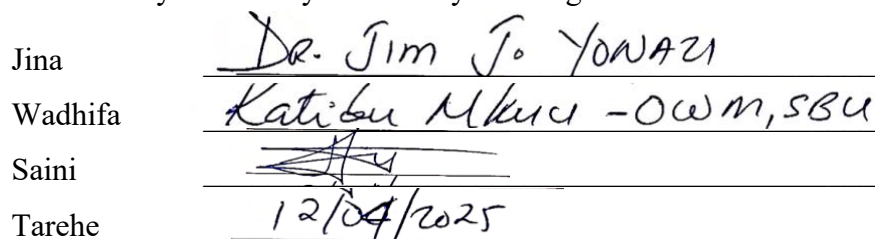 Jina Dr. Jim J. YONAZI
Wadhifa Katibu Mkuu - OWM, SBU
Saini
Tarehe 12/04/2025